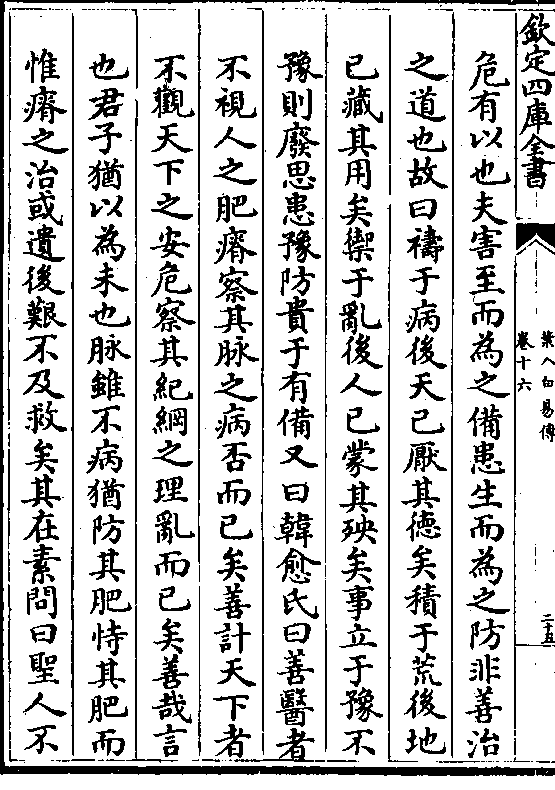 欽定四庫全書
葉八白易傳
卷十六
二十五
危有以也夫害至而為之備患生而為之防非善治
之道也故曰禱于病後天已厭其德矣積于荒後地
已藏其用矣禦于亂後人已蒙其殃矣事立于豫不
豫則廢思患豫防貴于有備又曰韓愈氏曰善醫者
不視人之肥瘠察其脉之病否而已矣善計天下者
不觀天下之安危察其紀綱之理亂而已矣善哉言
也君子猶以為未也脉雖不病猶防其肥恃其肥而
惟瘠之治或遺後艱不及救矣其在素問曰聖人不